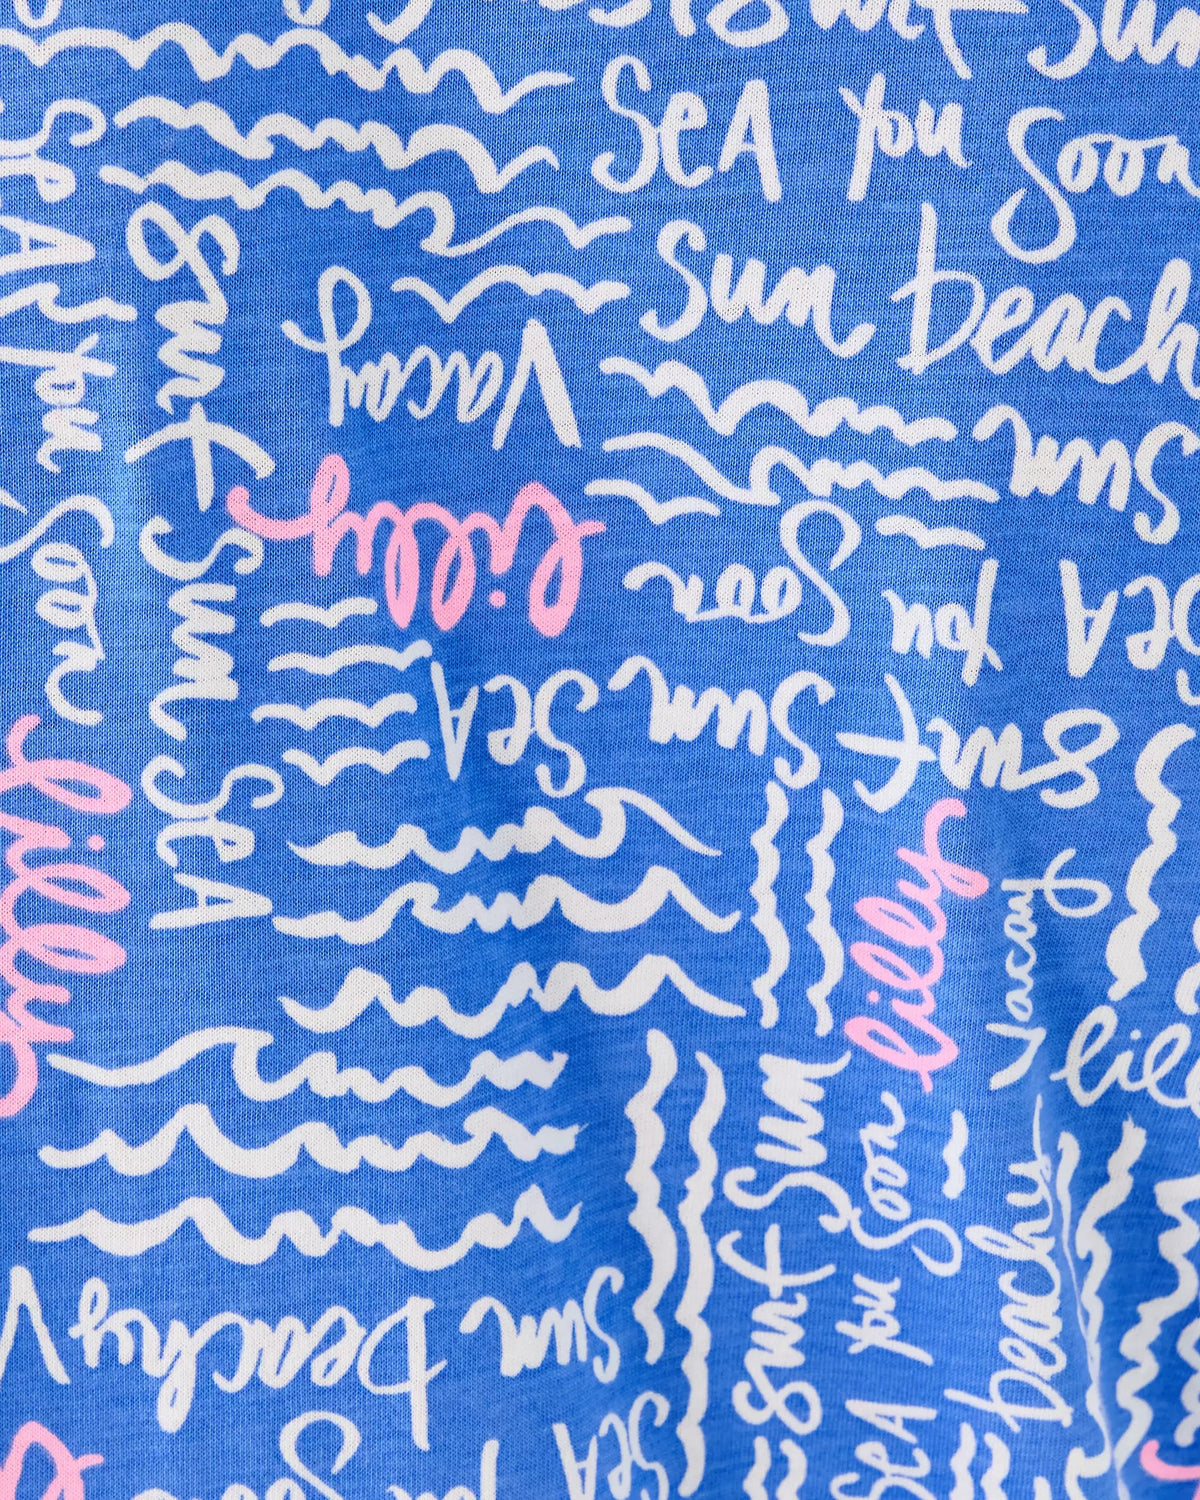 Surf Sun
SEA you Soon
Sun beach
SEA you Soon
Surf Sun SEA
Vacay
lilly
Sun
SEA you Soon
Surf Sun SEA
lilly
lilly
Vacay
lil
Surf Sun
SEA you Soon
beachy
Sun beachy V
SEA